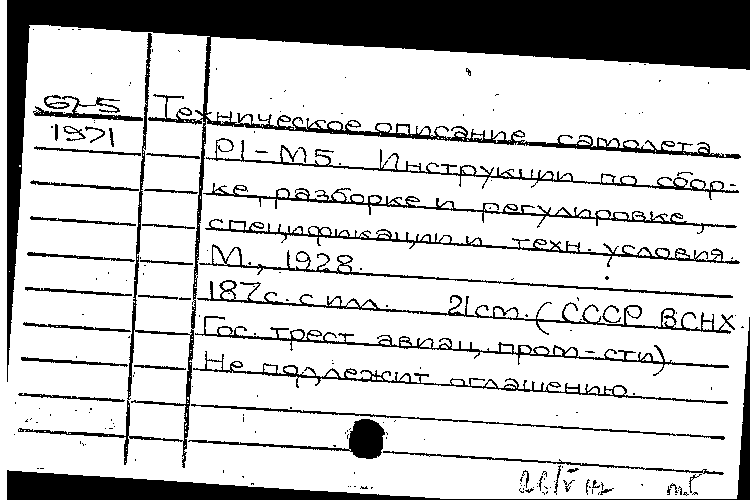 62-5 Техническое описание самолета
1971 Р1-М5. Инструкции по сбор-
ке, разборке и регулировке,
спецификации и техн. условия.
М., 1928.
187с. с илл. 21см. (СССР ВСНХ.
Гос. трест авиац. пром-сти)
Не подлежит оглашению.